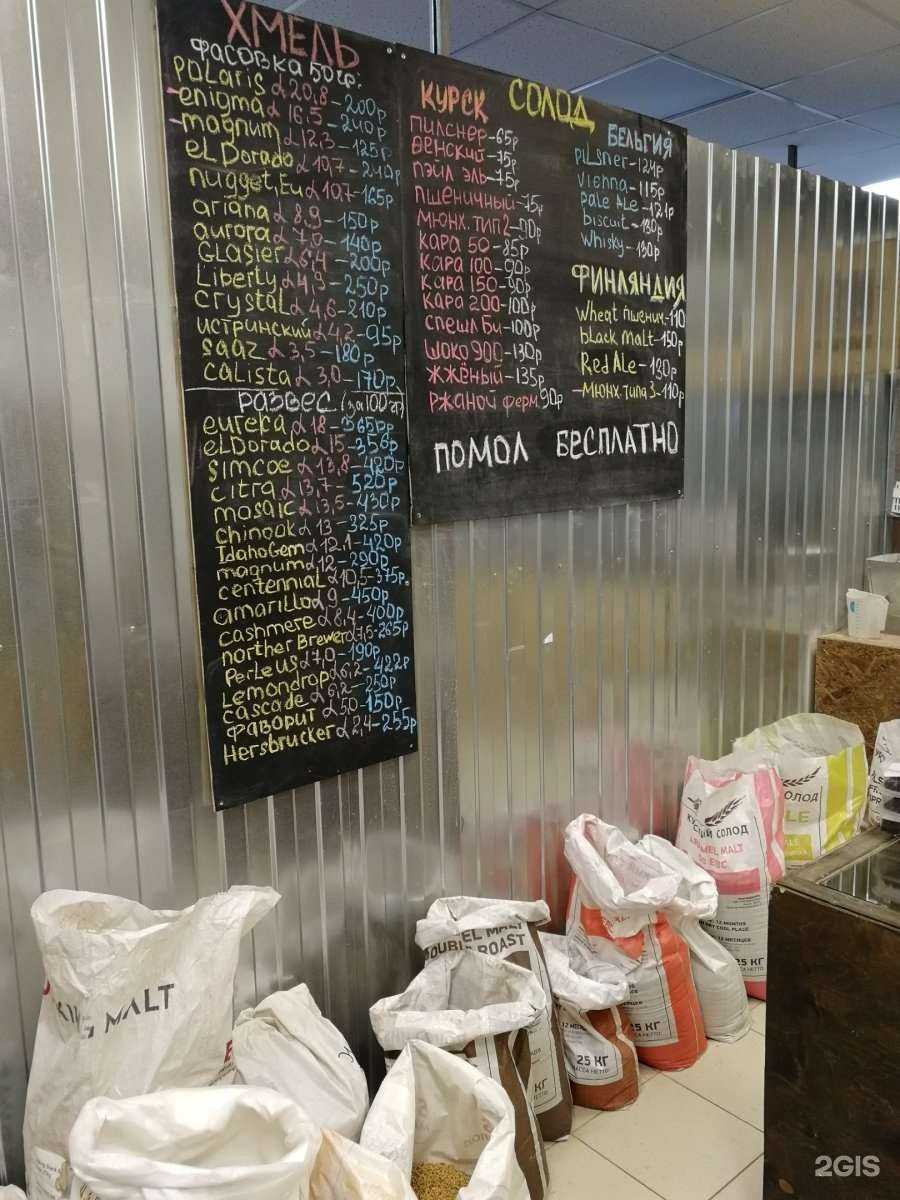 ХМЕЛЬ
ФАСОВКА 50гр.
POLaris α 20,8-200р
enigma α 16,5-240р
magnum α 12,3-125р
eLDorado α 10,7-240р
nugget,Eu α 10,7-165р
ariana α 8,9-150р
aurora α 7,0-140р
GLasier α 6,4-200р
Liberty α 4,9-250р
crystal α 4,6-210р
истринский α 4,2-95р
saaz α 3,5-180р
caLista α 3,0-170р
РАЗВЕС (за 100гр)
eureka α 18-365р
eLDorado α 15-356р
simcoe α 13,8-420р
citra α 13,7-520р
mosaic α 13,5-430р
chinook α 13-325р
IdahoGem α 12.1-420р
magnum α 12-290р
centenniaL α 10,5-375р.
amarillo α 9-450р
cashmere α 8,4-400р
norther Brewer α 7,5-265р
PerLe US α 7,0-190р
Lemondrop α 6,2-422р
cascade α 6,2-250р
ФАВОРИТ α 50-150р
Hersbrucker α 2,4-255р
СОЛОД
КУРСК
ПИЛСНЕР-65р
ВЕНСКИЙ-75р
ПЭЙЛ ЭЛЬ-75р
ПШЕНИЧНЫЙ-75р
МЮНХ. ТИП 2-90р
КАРА 50-85р
КАРА 100-90р
КАРА 150-90р
КАРА 200-100р
СПЕШЛ Би-100р
ШОКО 900-130р
ЖЖЁНЫЙ-135р
РЖАНОЙ ферм 90р
БЕЛЬГИЯ
piLsner-121р
vienna-115р
paLe ALe-121р
biscuit-130р
whisky-130р
ФИНЛЯНДИЯ
wheat пшенич.-110
bLack maLt-150р
Red ALe-130р
МЮНХ. типа 3-110р
ПОМОЛ БЕСПЛАТНО
MALT
DOUBLE ROAST
КГ
25 КГ
МАССА НЕТТО
25 КГ
КУРСКИЙ СОЛОД
CARAMEL MALT
EBC
12 MONTHS
12 МЕСЯЦЕВ
25 КГ
СОЛОД
2GIS